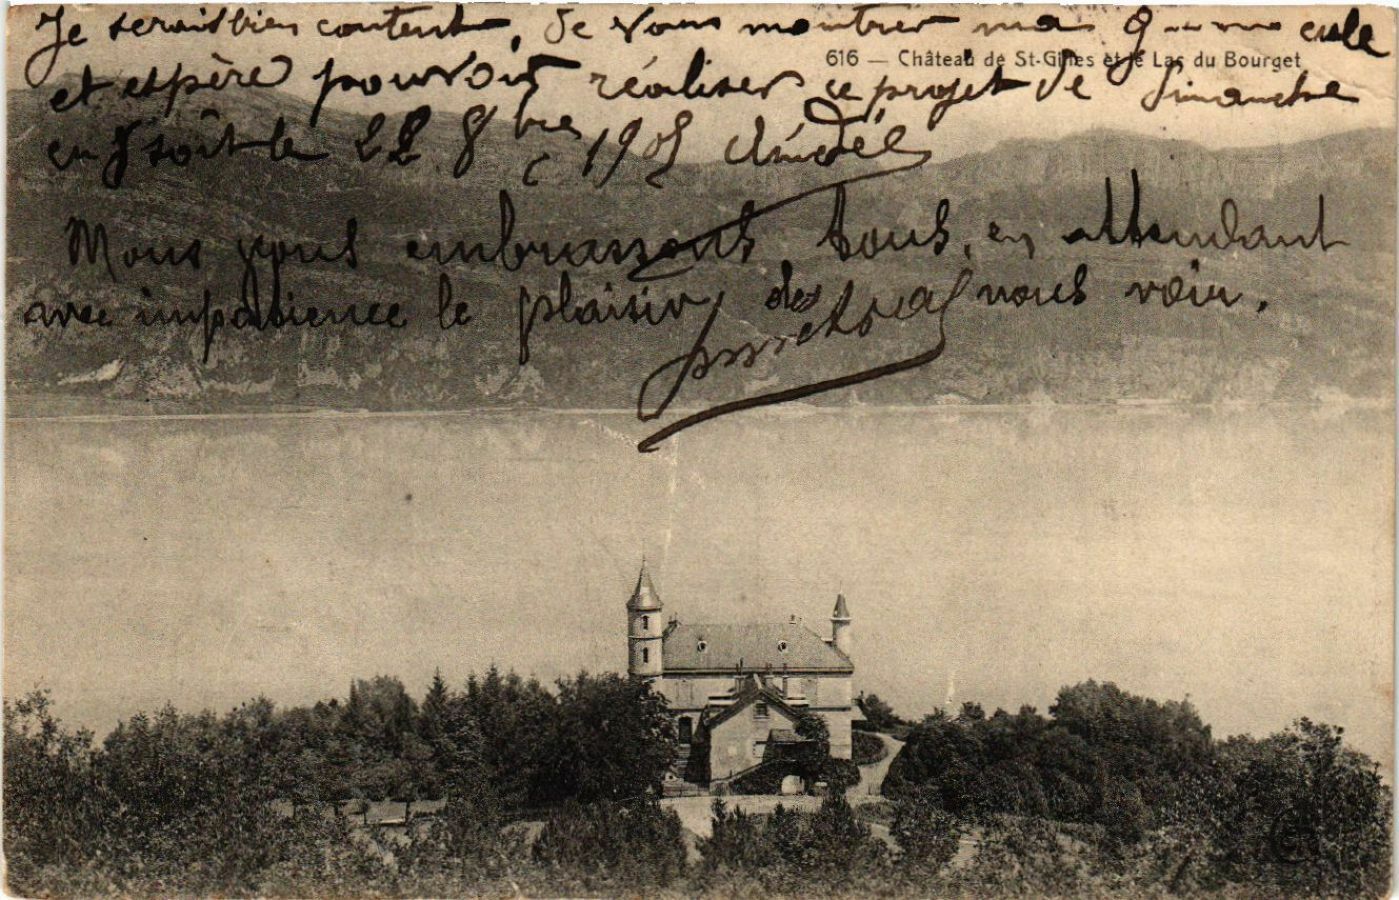 Je serais bien content, de vous montrer ma
616 — Château de St-Gilles et le Lac du Bourget
et espère pouvoir réaliser ce projet de Dimanche
en 8 soit le 22 8bre 1905 Amédée
Nous vous embrassons tous, en attendant
avec impatience le plaisir de vous voir.